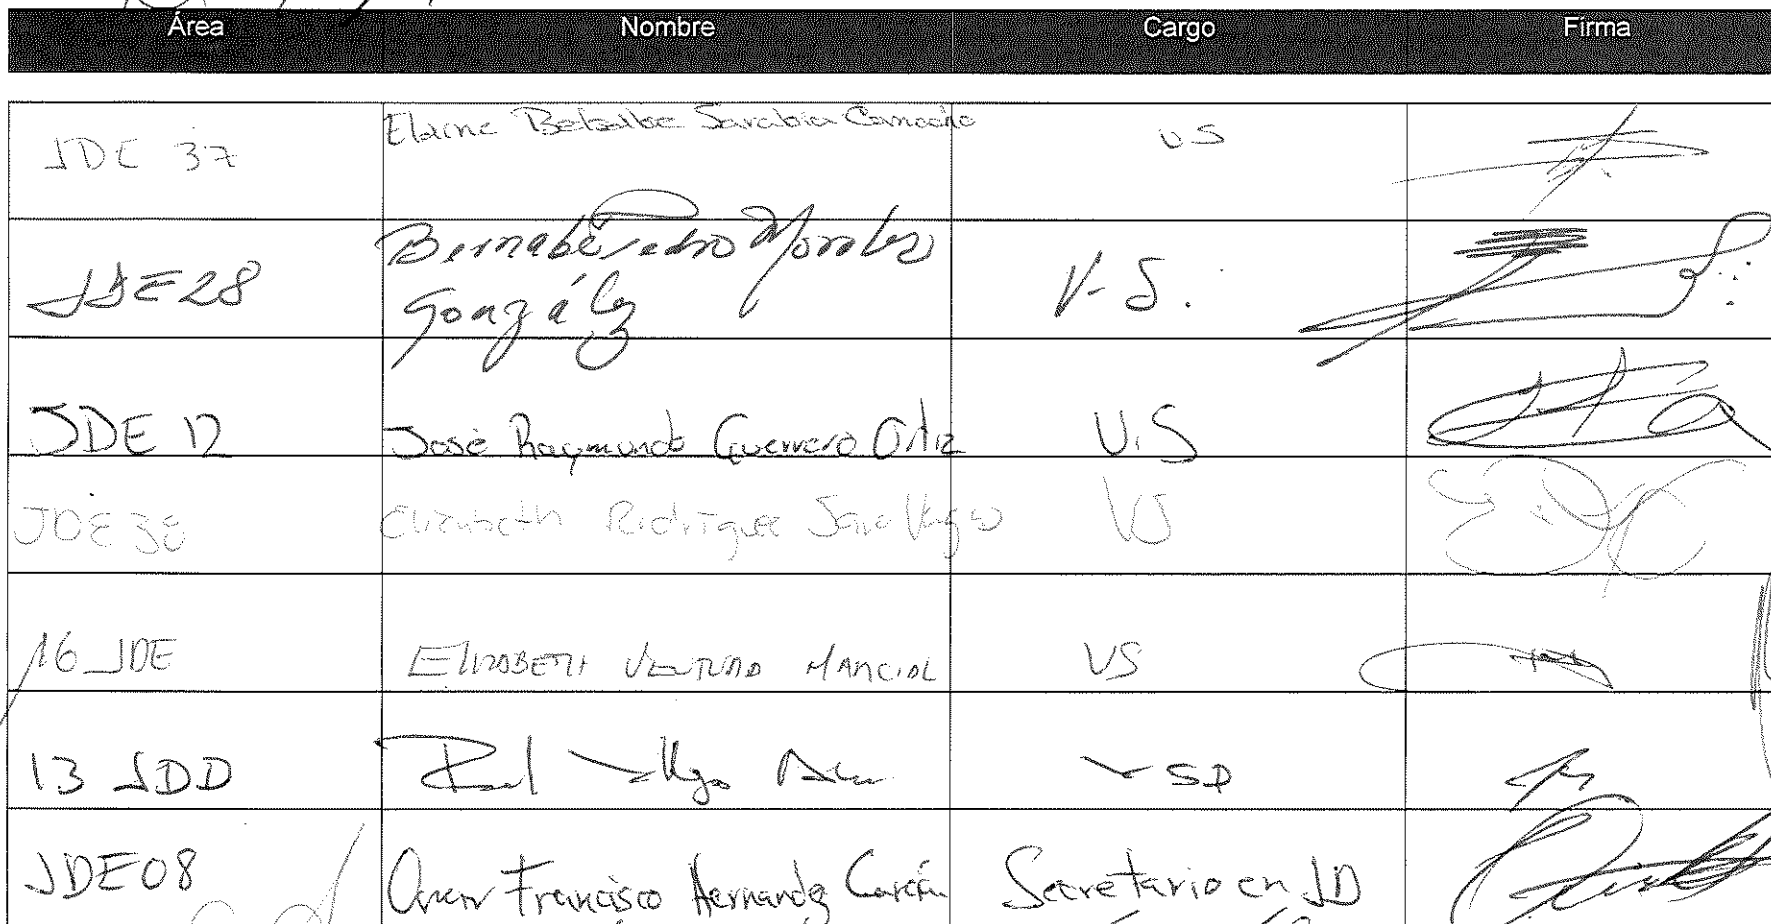 Área Nombre Cargo Firma
JDE 37 Elaine Betsalbe Sarabia Camacho VS
JDE 28 Bernabé Pedro Morales V.S.
González
JDE 12 José Raymundo Guerrero Ortiz V.S
JDE 38 Elizabeth Rodríguez VS
16 JDE ELIZABETH VENTURA MANCIAL VS
13 JDD VSD
JDE08 Omar Francisco Hernandez Secretario en JD